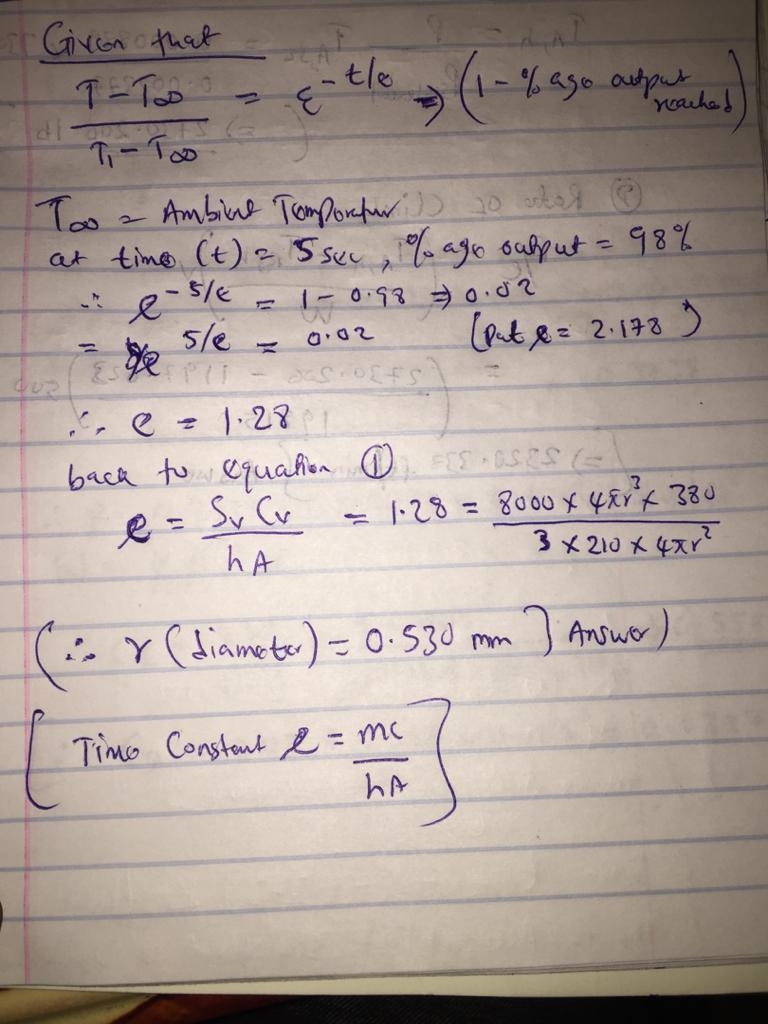 Given that
T - T∞ / T₁ - T∞ = ε^-t/e ⇒ (1 - % age output reached)
T∞ = Ambient Temperatur
at time (t) = 5 sec, % age output = 98%
∴ e^-5/e = 1 - 0.98 ⇒ 0.02
= 1/e 5/e = 0.02 (Put e = 2.178)
∴ e = 1.28
back to equation ①
e = SvCv / hA = 1.28 = 8000 x 4πr³ x 380 / 3 x 210 x 4πr²
(∴ r (diameter) = 0.530 mm ] Answer)
[ Time Constant e = mc / hA ]